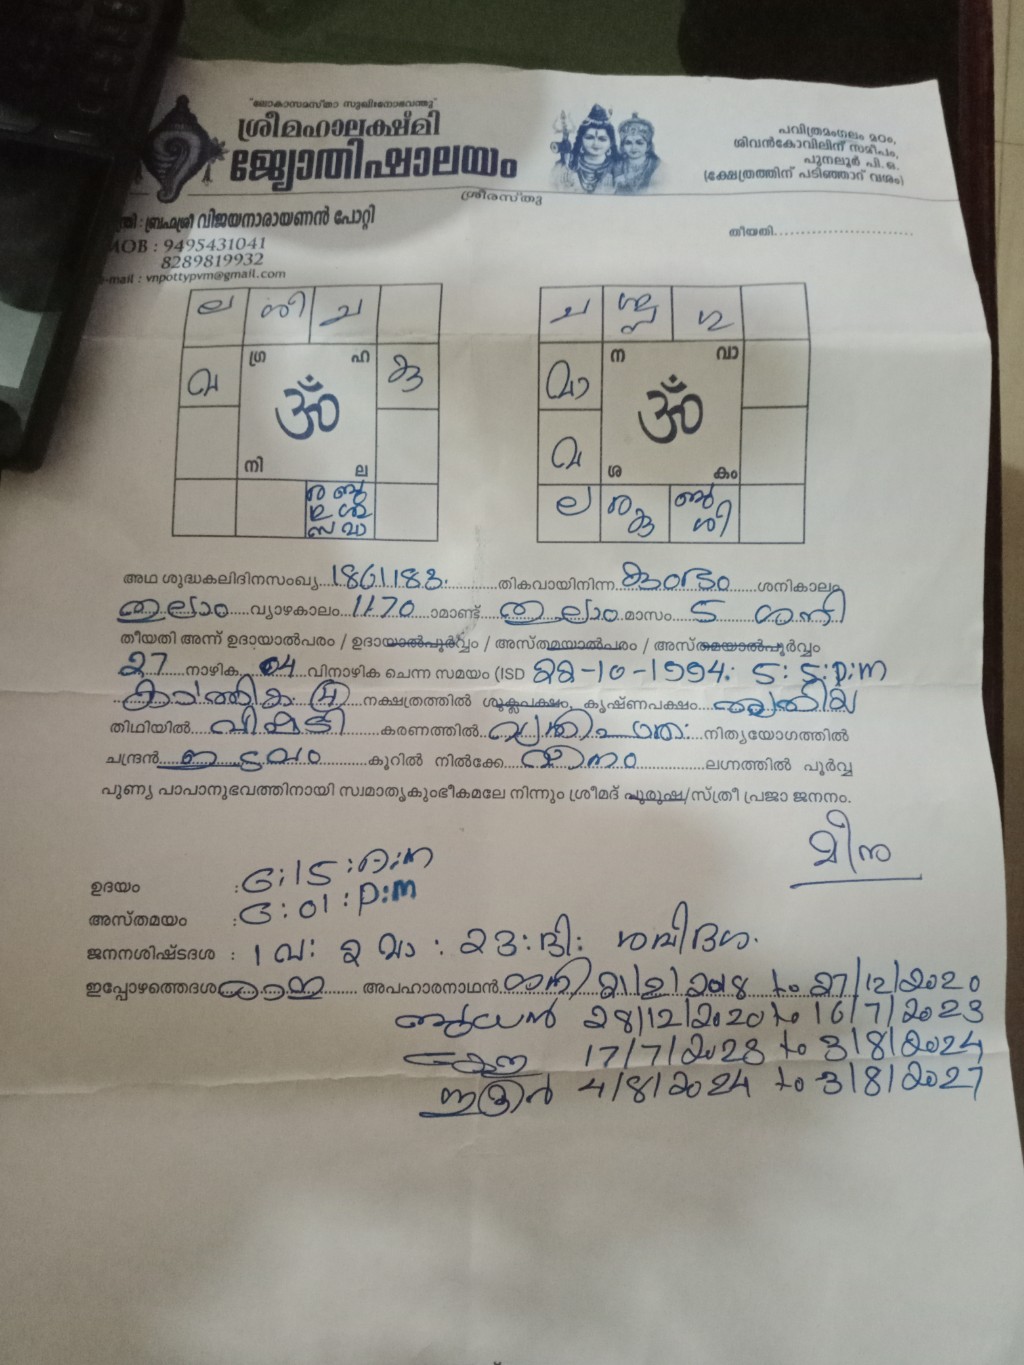 "ലോകാസമസ്താ സുഖിനോഭവന്തു"
ശ്രീമഹാലക്ഷ്മി
ജ്യോതിഷാലയം
പവിത്രമംഗലം മഠം,
ശിവൻകോവിലിന് സമീപം,
പുനലൂർ പി.ഒ.
(ക്ഷേത്രത്തിന് പടിഞ്ഞാറ് വശം)
ശ്രീരസ്തു
ബ്രഹ്മശ്രീ വിജയനാരായണൻ പോറ്റി
തീയതി
MOB : 9495431041
8289819932
e-mail : vnpottypvm@gmail.com
ല ശി ച
ഗ്ര ഹ
വ കു
ॐ
നി ല
ച ഗു
ന വാ
മാ
ॐ
വ
ശ കം
ല
അഥ ശുദ്ധകലിദിനസംഖ്യ 1861183 തികവായിനിന്ന കുംഭം ശനികാലം
തുലാം വ്യാഴകാലം 1170 ാമാണ്ട് തുലാം മാസം 5 ശനി
തീയതി അന്ന് ഉദായാൽപരം / ഉദായാൽപൂർവ്വം / അസ്തമയാൽപരം / അസ്തമയാൽപൂർവ്വം
27 നാഴിക 04 വിനാഴിക ചെന്ന സമയം (ISD 22-10-1994: 5:5:P:m
കാർത്തിക (4) നക്ഷത്രത്തിൽ ശുക്ലപക്ഷം, കൃഷ്ണപക്ഷം തൃതീയ
തിഥിയിൽ വിഷ്ടി കരണത്തിൽ നിത്യയോഗത്തിൽ
ചന്ദ്രൻ ഇടവം കൂറിൽ നിൽക്കേ മീനം ലഗ്നത്തിൽ പൂർവ്വ
പുണ്യ പാപാനുഭവത്തിനായി സ്വമാതൃകുംഭീകമലേ നിന്നും ശ്രീമദ് പുരുഷ/സ്ത്രീ പ്രജാ ജനനം.
ഉദയം : 6:15:A:m
അസ്തമയം : 6:01:P:m
ജനനശിഷ്ടദശ : 1 വ: 2 മാ: 23: ദി: രവിദശ.
ഇപ്പോഴത്തെദശ അപഹാരനാഥൻ ശനി 21/2/2018 to 27/12/2020
ബുധൻ 28/12/2020 to 16/7/2023
17/7/2023 to 3/8/2024
4/8/2024 to 3/8/2027